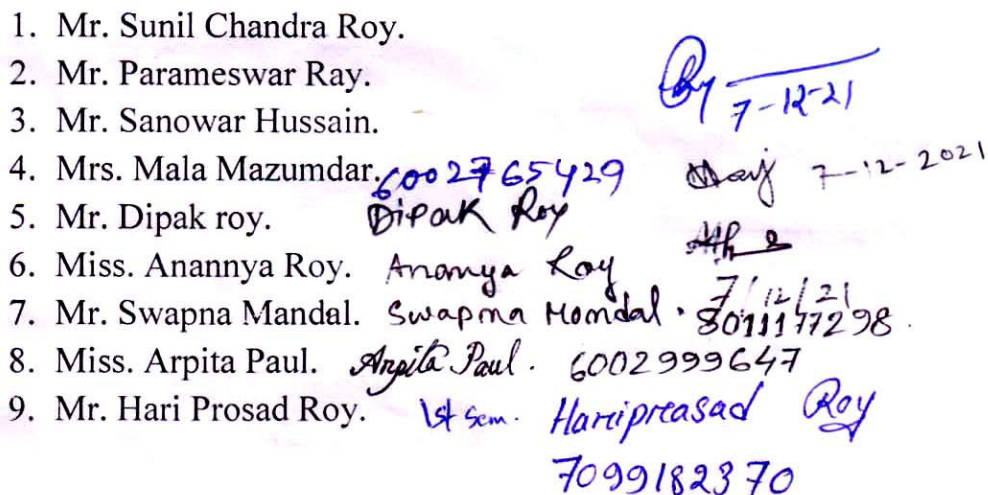 1. Mr. Sunil Chandra Roy.
2. Mr. Parameswar Ray.
7-12-21
3. Mr. Sanowar Hussain.
4. Mrs. Mala Mazumdar. 6002765429 7-12-2021
5. Mr. Dipak roy. Dipak Roy
6. Miss. Anannya Roy. Anannya Roy 7/12/21
7. Mr. Swapna Mandal. Swapna Mondal. 8011177298.
8. Miss. Arpita Paul. Arpita Paul. 6002999647
9. Mr. Hari Prosad Roy. 1st sem. Hariprasad Roy
7099182370